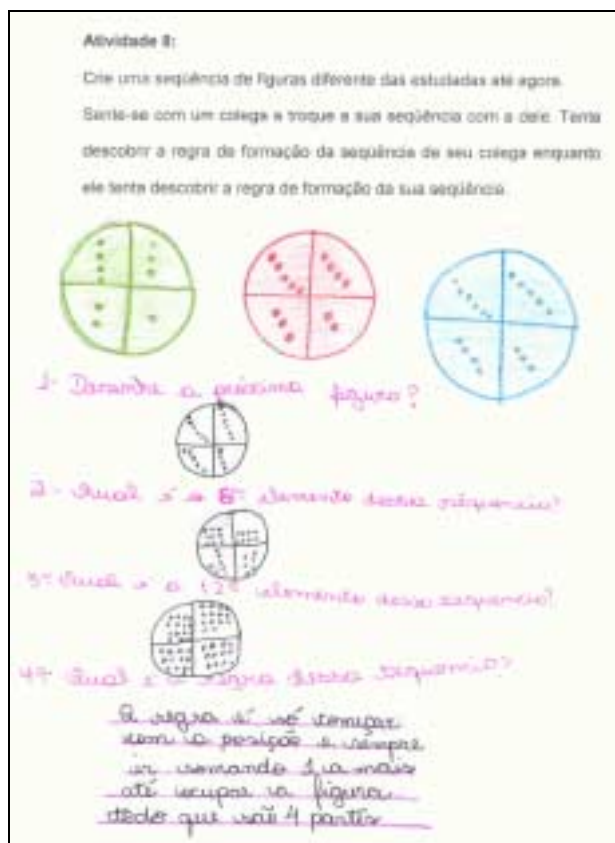 Atividade 8:
Crie uma seqüência de figuras diferente das estudadas até agora.
Sente-se com um colega e troque a sua seqüência com a dele. Tente
descobrir a regra de formação da seqüência de seu colega enquanto
ele tenta descobrir a regra de formação da sua seqüência.
1- Desenhe a próxima figura?
2- Qual é o 8º elemento dessa sequencia?
3- Qual é o 12º elemento dessa sequencia?
4- Qual é a regra dessa sequencia?
A regra é só começar
com a posição e sempre
ir somando 1 a mais
até ocupar a figura
que são 4 partes